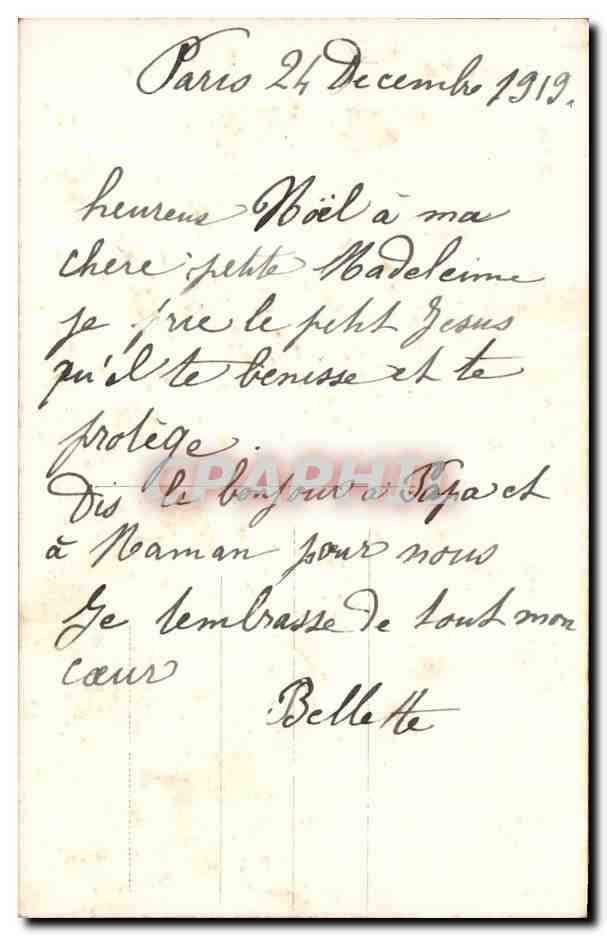 Paris 24 Decembre 1919.
heureux Noël à ma
chere petite Madeleine
je prie le petit Jesus
qu'il te benisse et te
protège.
Dis le bonjour à Papa et
à Maman pour nous
Je tembrasse de tout mon
cœur
Bellette